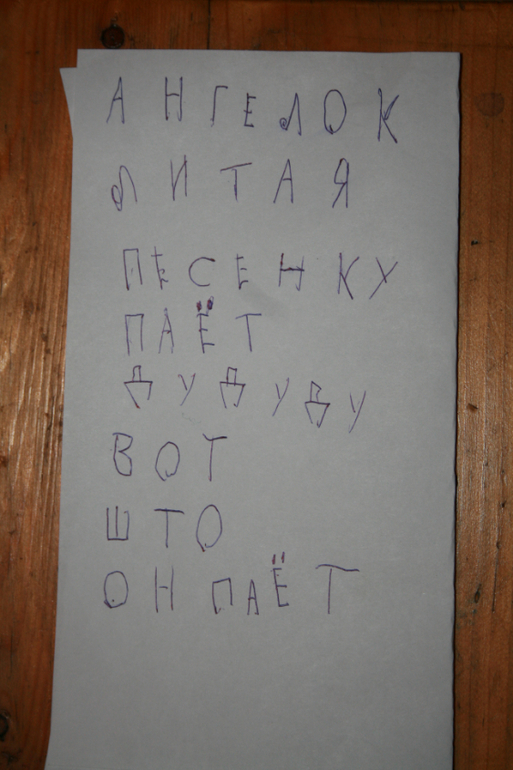 АНГЕЛОК
ЛИТАЯ
ПЕСЕНКУ
ПАЁТ
ДУДУДУ
ВОТ
ШТО
ОН ПАЁТ